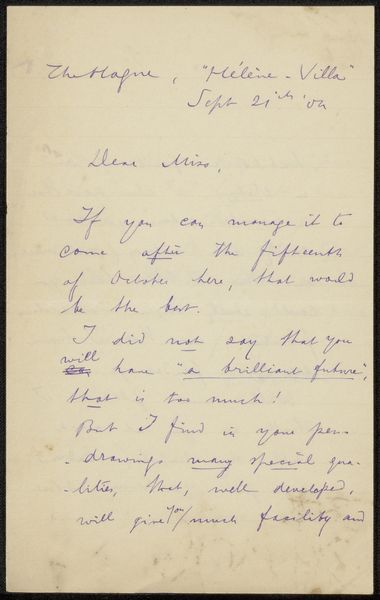 The Hague, "Hélène-Villa"
Sept 21th '04
Dear Miss,
If you can manage it to
come after the fifteenth
of October here, that would
be the best.
I did not say that you
will
have "a brilliant future",
that is too much!
But I find in your pen-
-drawings many special qua-
-lities, that, well developed,
will give you much facility and